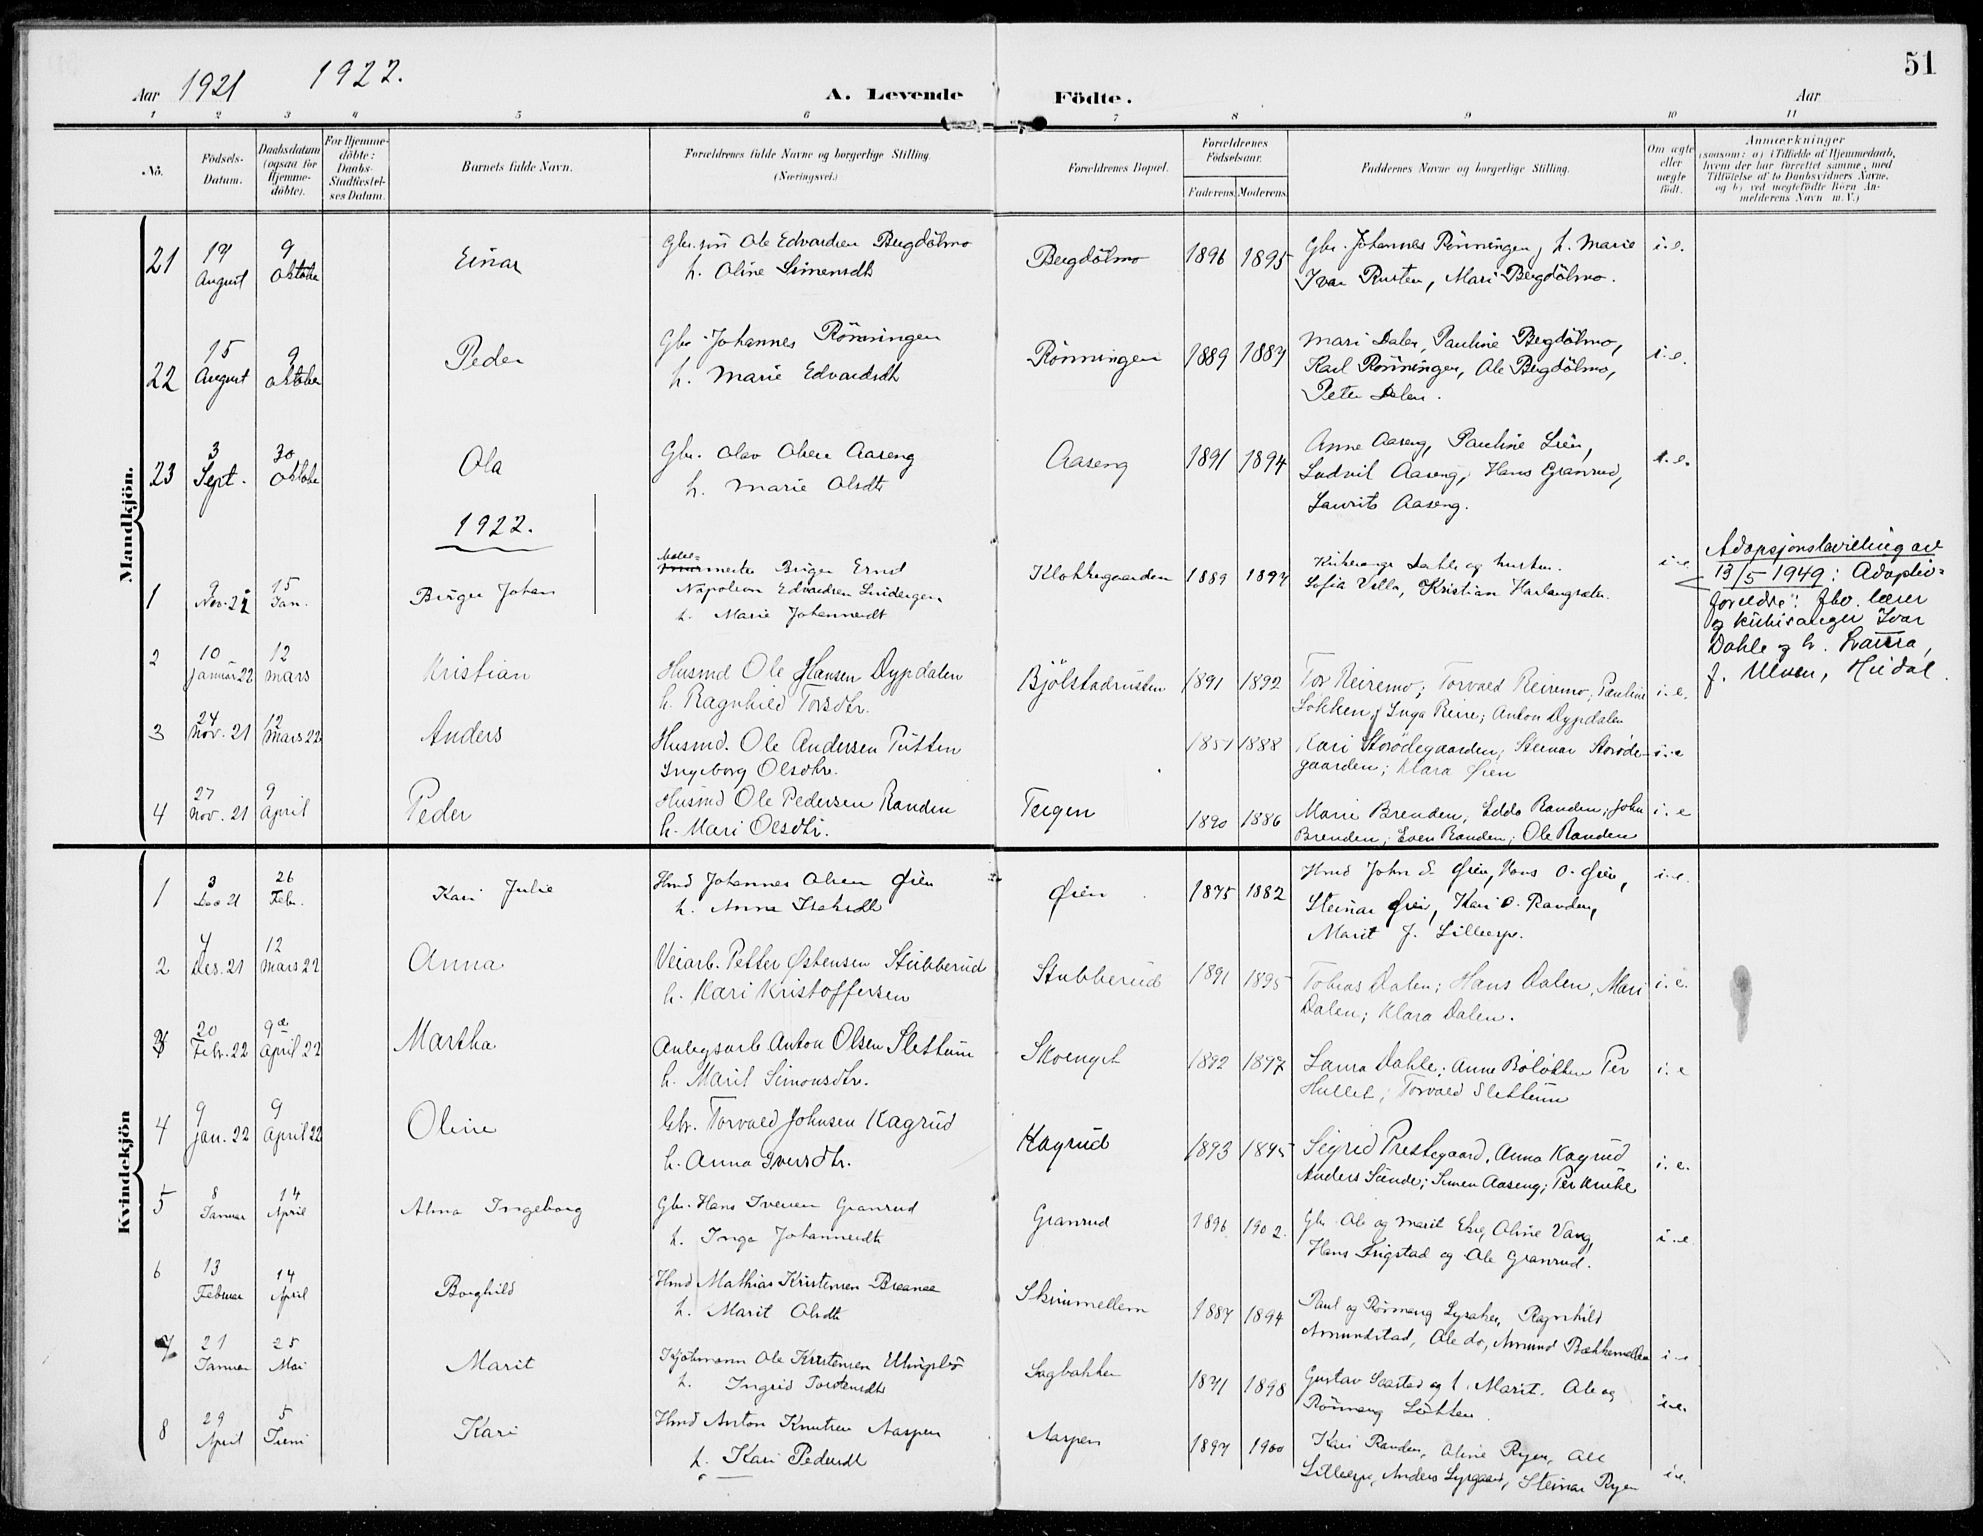 51
Aar 1921 1922.
A. Levende Födte.
Aar
1 2 3 4 5 6 7 8 9 10 11
No.
Födsels-Datum.
Daabsdatum (ogsaa for Hjemme-döbte).
For Hjemme-döbte: Daabs-Stadfæstel-ses Datum.
Barnets fulde Navn.
Forældrenes fulde Navne og borgerlige Stilling (Næringsvei.)
Forældrenes Bopæl.
Forældrenes Födselsaar.
Faderens. Moderens.
Faddernes Navne og borgerlige Stilling.
Om ægte eller uægte födt.
Anmærkninger
(saasom: a) i Tilfælde af Hjemmedaab,
hvem der har forrettet samme, med
Tilföielse af to Daabsvidners Navne,
og b) ved uægtefödte Börn An-
melderens Navn m.V.)
Mandkjön.
21 19 August 9 Oktober Einar
Gbr. sön Ole Edvardsen Bergdölmo
h. Oline Simensdtr
Bergdölmo 1896 1895
Gbr. Johannes Rönningen, h. Marie
Ivar Rusten, Mari Bergdölmo.
i.e.
22 15 August 9 Oktober Peder
Gbr Johannes Rönningen
h. Marie Edvardsdtr
Rönningen 1889 1887
Mari Dalen, Pauline Bergdölmo,
Karl Rönningen, Ole Bergdölmo,
Peter Dalen.
i.e.
23 3 Sept. 30 Oktober Ola
Gbr. Olav Olsen Aaseng
h. Marie Olsdtr
Aaseng 1891 1894
Anne Aaseng, Pauline Lien,
Ludvik Aaseng, Hans Granrud,
Laurits Aaseng.
i.e.
1922.
1 9 Nov. 21 15 Jan. Birger Johan
Maler-
mester Birger Ernst
Napoleon Edvardsen Lindergen
h. Marie Johannesdt
Klokkegaarden 1889 1897
Kirkesanger Dahle og hustru.
Sofia Villa, Kristian Harlaugsæter.
i.e
Adopsjonsbevilling av
13/5 1949: Adoptiv-
foreldre: fhv. lærer
og kirkesanger Ivar
Dahle og h. Laura,
f. Ulven, Heidal.
2 10 Januar 22 12 Mars Kristian
Husmd Ole Hansen Dypdalen
h. Ragnhild Torsdtr.
Bjölstadrusten 1891 1892
Tor Reiremo; Torvald Reiremo, Pauline
Lökken, Inga Reire; Anton Dypdalen
i.e.
3 24 Nov. 21 12 Mars 22 Anders
Husmd. Ole Andersen Putten
Ingeborg Olsdtr.
1851 1888
Kari Storödegaarden; Steinar Storöde-
gaarden; Klara Øien
i.e
4 27 Nov. 21 9 April Peder
Husmd Ole Pedersen Randen
h. Mari Olsdtr.
Teigen 1890 1886
Marie Brenden, Eddo Randen; John
Brenden; Even Randen; Ole Randen
i.e
Kvindekjön
1 3 Des 21 26 Febr. Kari Julie
Hmd Johannes Olsen Øien
h. Anna Isaksdtr
Øien 1875 1882
Hmd John S. Øien, Hans O. Øien,
Steinar Øien, Kari O. Randen,
Marit J. Lilleerpe.
i.e.
2 4 Des. 21 12 Mars 22 Anna
Veiarb. Petter Østensen Stubberud
h. Kari Kristoffersen
Stubberud 1891 1895
Tobias Dalen; Hans Dalen, Mari
Dalen; Klara Dalen.
i.e.
3 20 Febr. 22 9de April 22 Martha
Anlegsarb. Anton Olsen Slettum
h. Marit Simonsdtr.
Skoenget 1892 1897
Laura Dahle; Anne Bölökken Per
Hullet; Torvald Slettum
i.e
4 9 Jan. 22 9 April 22 Oline
Gbr. Torvald Johnsen Kagrud
h. Anna Iversdtr.
Kagrud 1893 1895
Sigrid Prestegaard, Anna Kagrud
Anders Sunde; Simen Aaseng; Per Kruke
i.e.
5 8 Januar 14 April Alma Ingeborg
Gbr. Hans Iversen Granrud
h. Inga Johannesdtr
Granrud 1896 1902.
Gbr Ole og Marit Ekre, Oline Vang,
Hans Frigstad og Ole Granrud.
i.e.
6 13 Februar 14 April Borghild
Hmd Mathias Kristensen Breenee
h. Marit Olsdtr
Skrinnellem 1887 1894
Paul og Rönnaug Lysaker, Ragnhild
Amundstad, Ole do, Amund Bækkemellem
i.e
7 21 Januar 25 Mai Marit
Skjötmann Ole Kristensen Ellingsbö
h. Ingrid Torstensdtr
Sagbakken 1871 1898
Gustav Saastad og h. Marit. Ole og
Rönnaug Lökken.
i.e.
8 29 April 5 Juni Kari
Hmd Anton Knutsen Aaspen
h. Kari Pedersdt
Aaspen 1897 1900
Kari Randen, Oline Ryen, Ole
Lilleerpe, Anders Lyrgaard, Steinar Ryen
i.e.